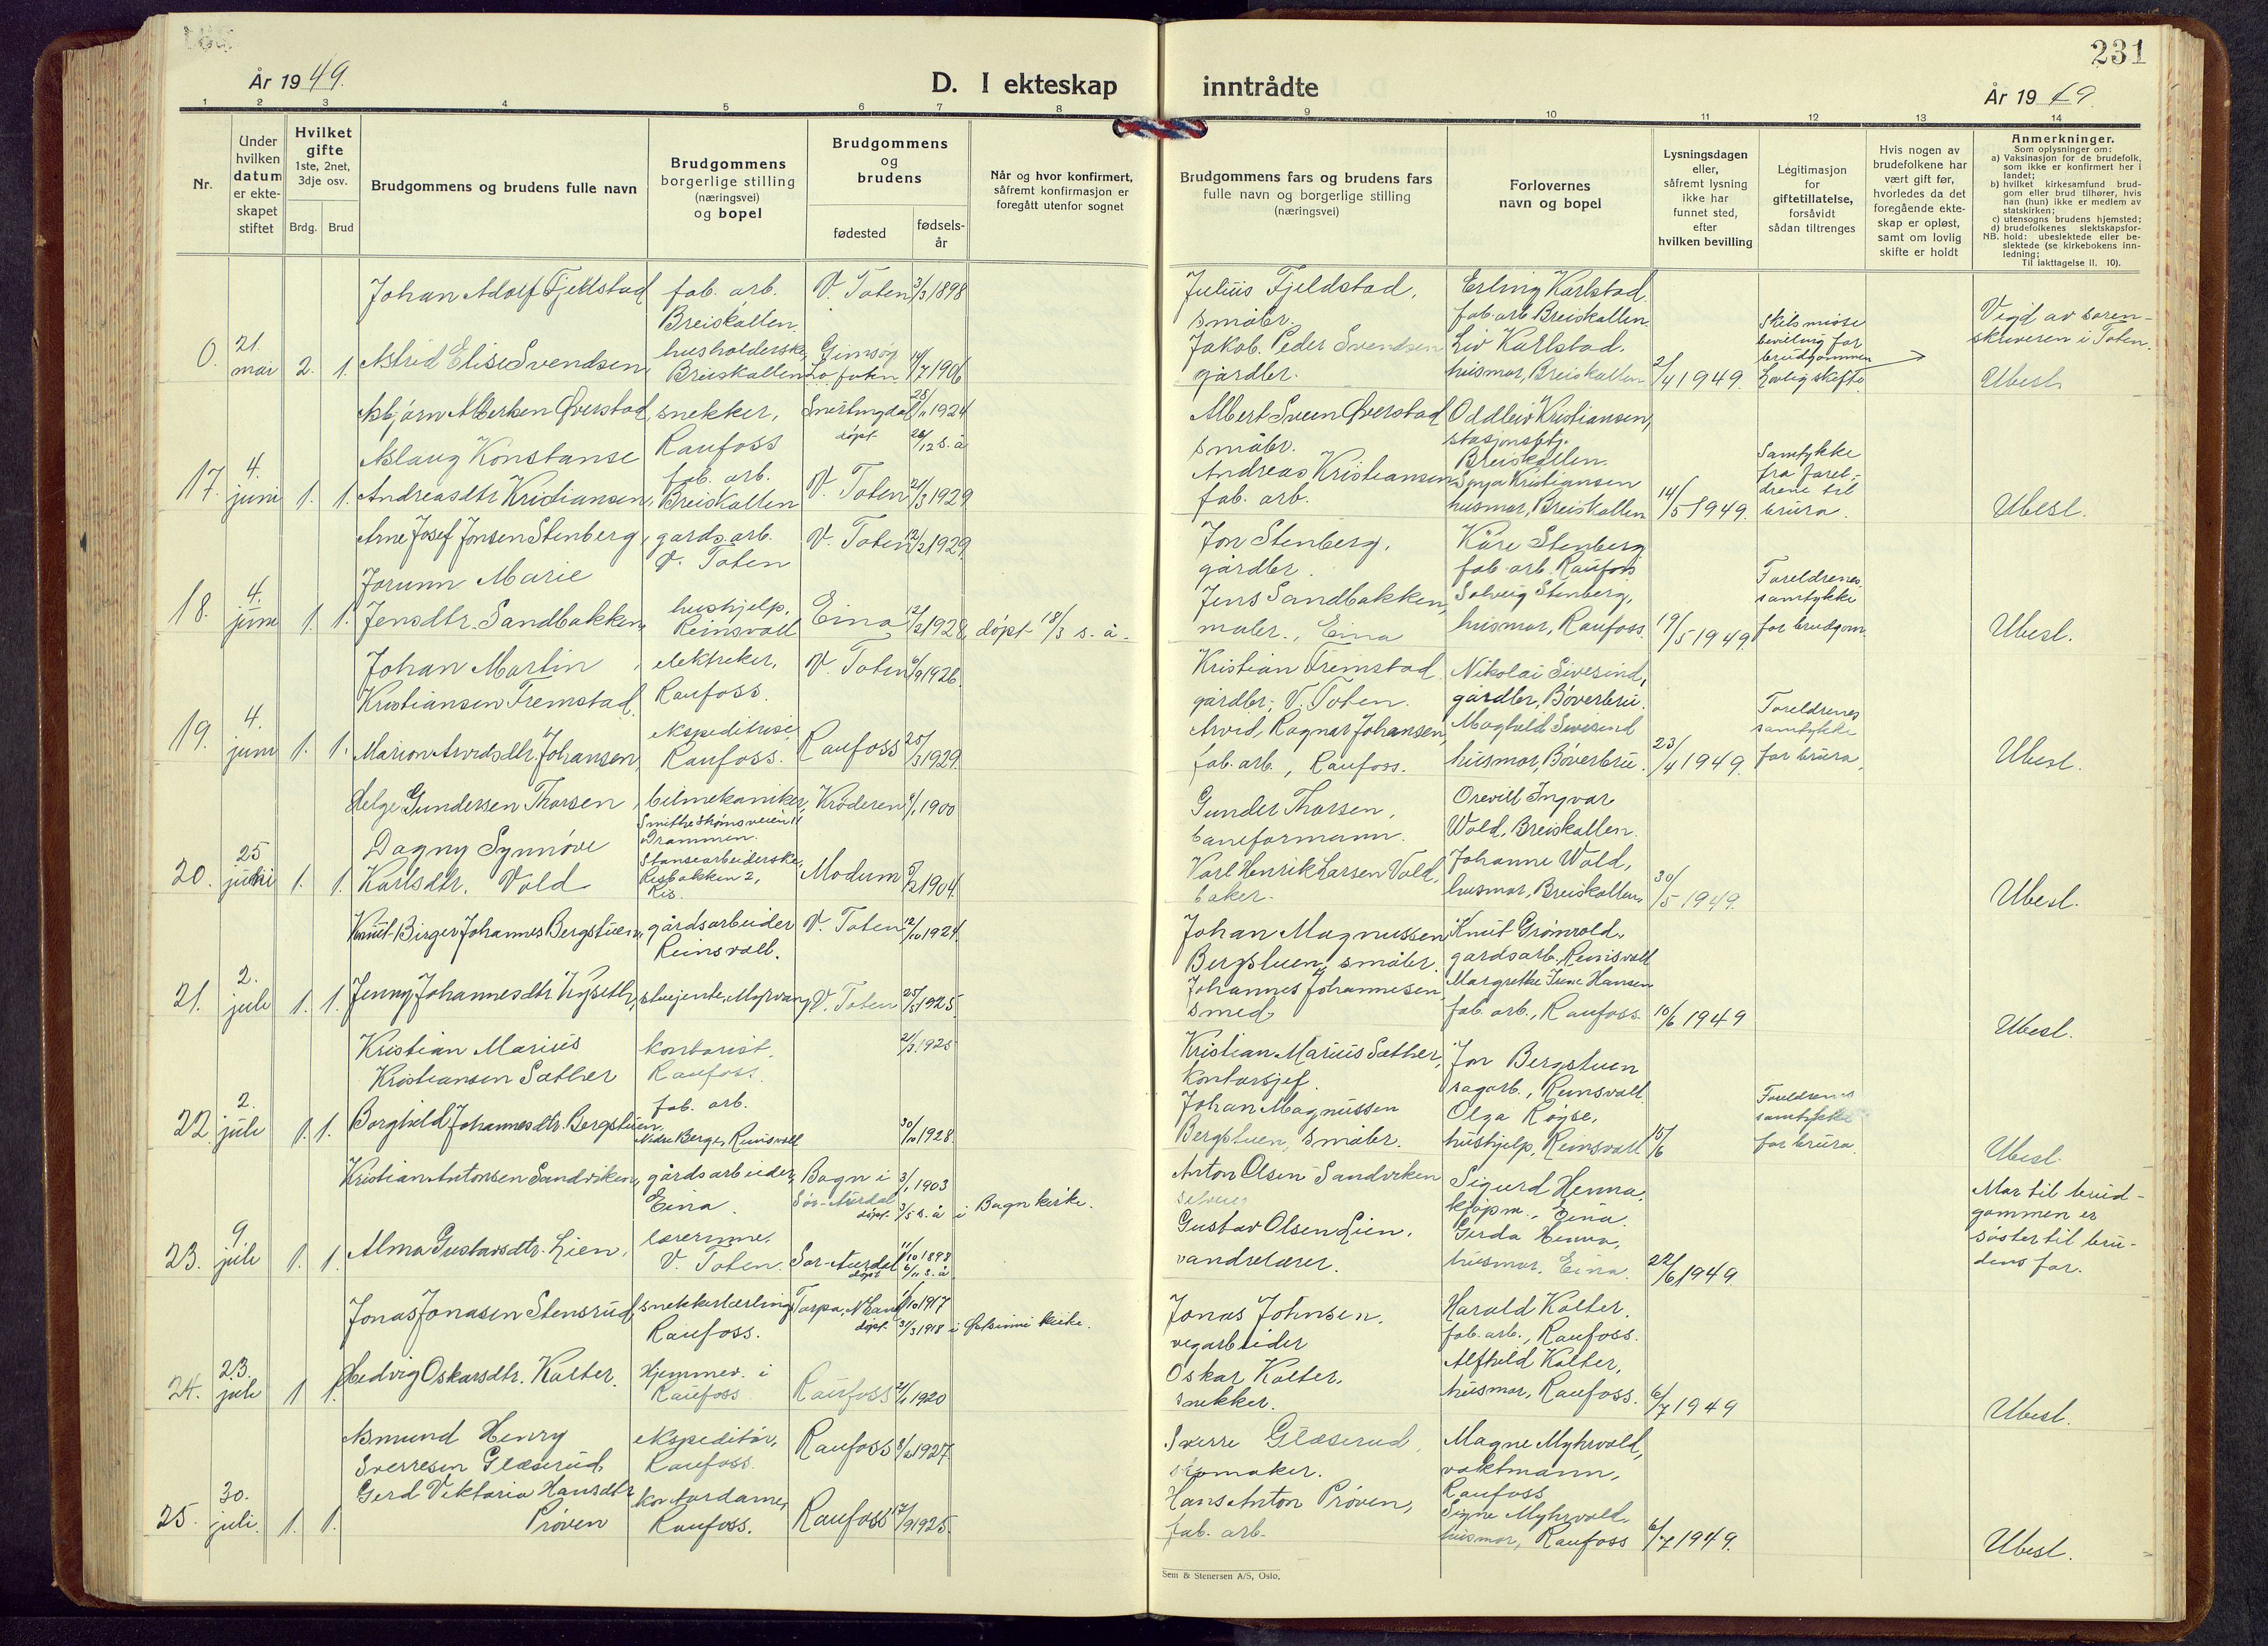 231
År 1949.
D. I ekteskap inntrådte
År 1949.
1 2 3 4 5 6 7 8 9 10 11 12 13 14
Nr.
Under hvilken datum er ekte-skapet stiftet
Hvilket gifte
1ste, 2net, 3dje osv.
Brdg. Brud
Brudgommens og brudens fulle navn
Brudgommens borgerlige stilling (næringsvei) og bopel
Brudgommens og brudens
fødested
fødsels-år
Når og hvor konfirmert, såfremt konfirmasjon er foregått utenfor sognet
Brudgommens fars og brudens fars fulle navn og borgerlige stilling (næringsvei)
Forlovernes navn og bopel
Lysningsdagen eller, såfremt lysning ikke har funnet sted, efter hvilken bevilling
Legitimasjon for giftetillatelse, forsåvidt sådan tiltrenges
Hvis nogen av brudefolkene har vært gift før, hvorledes da det foregående ekte-skap er opløst, samt om lovlig skifte er holdt
Anmerkninger.
Som oplysninger om:
a) Vaksinasjon for de brudefolk, som ikke er konfirmert her i landet;
b) hvilket kirkesamfund brud-gom eller brud tilhører, hvis han (hun) ikke er medlem av statskirken;
c) utensogns brudens hjemsted;
d) brudefolkenes slektskapsfor-hold: ubeslektede eller be-slektede (se kirkebokens inn-ledning;
NB.
Til iakttagelse II. 10).
Johan Adolf Fjeldstad fab. arb. V. Toten 3/3 1898
Breiskallen.
0. 21. mai 2. 1. Astrid Elise Svendsen, husholderske, Breiskallen Gimsøy Lofoten 14/7 1906
Julius Fjeldstad, småbr.
Jakob Peder Svendsen gårdbr.
Erling Karlstad fab. arb. Breiskallen.
Liv Karlstad. husmor, Breiskallen
2/4 1949.
Skilsmisse bevilling for brudgommen
Lovlig skifte
Vigd av soren-skriveren i Toten.
Ubesl.
Asbjørn Albertsen Øverstad, snekker, Raufoss Snertingdal 25/11 1924
døpt 26/12 s. å
17. 4. juni 1. 1. Aslaug Konstanse Andreasdtr Kristiansen, fab. arb. Breiskallen V. Toten 2/3 1929
Albert Sveen Øverstad småbr.
Andreas Kristiansen fab. arb.
Oddleiv Kristiansen, stasjonsbtj. Breiskallen.
Sonja Kristiansen husmor, Breiskallen
14/5 1949.
Samtykke fra forel-drene til brura.
Ubesl.
Arne Josef Jonsen Stenberg, gardsarb. V. Toten V. Toten 12/2 1929.
18. 4. juni 1. 1. Jorunn Marie Jensdtr. Sandbakken, hushjelp, Reinsvoll Eina 12/2 1928, døpt 18/3 s. å.
Jon Stenberg, gårdbr.
Jens Sandbakken, maler, Eina
Kåre Stenberg fab. arb. Raufoss
Solveig Stenberg, husmor, Raufoss.
19/5 1949
Foreldrenes samtykke for brudgom
Ubesl.
Johan Martin Kristiansen Fremstad elektriker, Raufoss. V. Toten 6/9 1926.
19. 4. juni 1. 1. Marion Arvidsdtr. Johansen, ekspeditrise Raufoss. Raufoss 25/3 1929.
Kristian Fremstad gårdbr., V. Toten.
Arvid Ragnar Johansen, fab. arb., Raufoss.
Nikolai Sivesind, gårdbr, Bøverbru.
Maghild Sivesind husmor, Bøverbru.
23/4 1949.
Foreldrenes samtykke for brura.
Ubesl.
Helge Gundersen Thorsen, bilmekaniker, Drammen. Krøderen 1900
20. 25 juni 1. 1. Dagny Synnøve Karlsdtr. Vold Stansearbeiderske, Risbakken 2, Ris. Modum 5/2 1904.
Gunder Thorsen, baneformann.
Karl Henrik Larsen Vold, baker.
Orvill Ingvar Wold, Breiskallen.
Johanne Wold, husmor, Breiskallen
30/5 1949.
Ubesl.
Knut-Birger Johannes Bergstuen, gårdsarbeider Reinsvoll. V. Toten 12/10 1924.
21. 2. juli 1. 1. Jenny Johannesdtr stuejente, V. Toten 25/5 1925.
Johan Magnussen Bergstuen, småbr.
Johannes Johannesen, smed
Knut Grønvold, gardsarb. Reinsvoll
Margrethe Irene Hansen fab. arb., Raufoss.
10/6 1949
Ubesl.
Kristian Marius Kristiansen Sæther kontorist. Raufoss. 1925
22. 2. juli 1. 1. Borghild Johannesdtr. Bergstuen, fab. arb. Nedre Berge, Reinsvoll 30/10 1928.
Kristian Marius Sæther, kontorsjef.
Johan Magnussen Bergstuen, småbr.
Jon Bergstuen sagarb., Reinsvoll.
Olga Røyse, hushjelp, Reinsvoll
15/6
Foreldrenes samtykke for brura.
Ubesl.
Kristian Antonsen Sandviken, gårdsarbeider, Eina. Bagn i Sør-Aurdal 3/1 1903
døpt 3/5 s. å i Bagn kirke.
23. 9. juli 1. 1. Alma Gustavsdtr. Lien, lærerinne, V. Toten. Sør-Aurdal 11/10 1898
døpt 6/11 s. å
Anton Olsen Sandviken
Gustav Olsen Lien, vandrelærer.
Sigurd Henna, kjøpm., Eina.
Gerda Henna, husmor, Eina.
22/6 1949.
Mor til brud-gommen er søster til bru-dens far.
Jonas Jonasen Stensrud, snekkerlærling Raufoss. Torpa, N. Land /10 1917
døpt 31/3 1918 i kirke.
24. 23. juli 1 1. Hedvig Oskarsdtr. Kolter. Hjemmev. i Raufoss Raufoss 1920
Jonas Johnsen, vegarbeider
Oskar Kolter, snekker.
Harald Kolter. fab. arb., Raufoss.
Alfhild Kolter, husmor, Raufoss.
6/7 1949
Ubesl.
Asmund Henry Sverresen Glæserud, ekspeditør, Raufoss. Raufoss 1927.
25. 30. juli. 1. 1. Gerd Viktoria Hansdtr Prøven kontordame, Raufoss. Raufoss 1925.
Sverre Glæserud, skomaker.
Hans Anton Prøven, fab. arb.
Magne Myhrvold, vaktmann, Raufoss
Signe Myhrvold, husmor, Raufoss
6/7 1949.
Ubesl.
Sem & Stenersen A/S, Oslo.